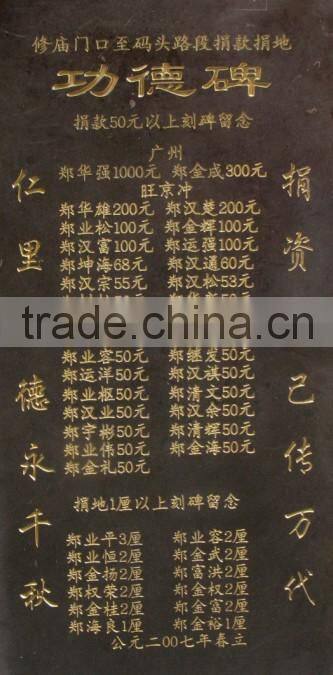 修庙门口至码头路段捐款捐地
功德碑
捐款50元以上刻碑留念
广州
郑华强1000元 郑金成300元
旺京冲
郑华雄200元 郑汉楚200元
郑业松100元 郑金辉100元
郑汉富100元 郑运强100元
郑坤海68元 郑汉通60元
郑汉宗55元 郑汉松53元
trade.china.cn
郑业容50元 郑继发50元
郑运洋50元 郑汉祺50元
郑业枢50元 郑清文50元
郑汉业50元 郑汉余50元
郑宇彬50元 郑清辉50元
郑业伟50元 郑金海50元
郑金礼50元
捐地1厘以上刻碑留念
郑业平3厘 郑业容2厘
郑业恒2厘 郑金武2厘
郑金扬2厘 郑富洪2厘
郑权荣2厘 郑金权2厘
郑金桂2厘 郑金富2厘
郑海良1厘 郑金裕1厘
公元二00七年春立
捐资 己传万代
仁里 德永千秋